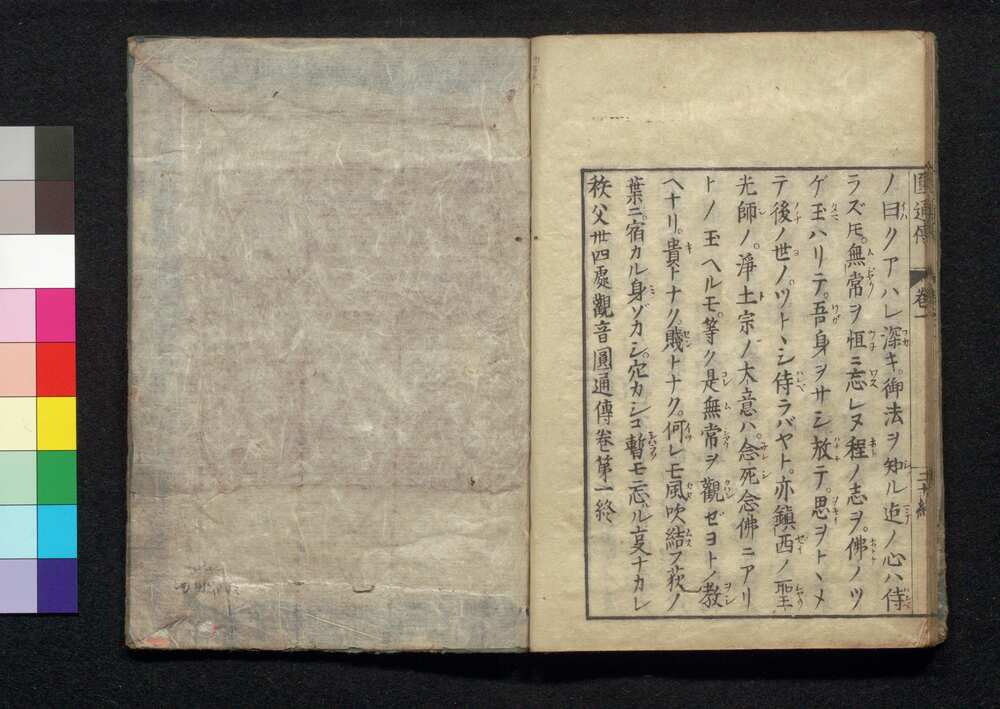 圓通傳 卷一 二十終
ノ曰クアハレ深キ御法ヲ知ル迠ノ心ハ侍
ラズ𪜈。無常ヲ恒ニ忘レヌ程ノ志ヲ。佛ノツ
ゲ玉ハリテ。吾身ヲサシ放テ。思ヲトヽメ
テ後ノ世ノ。ツトヽシ侍ラバヤト。亦鎮西ノ聖
光師ノ。淨土宗ノ大意ハ。念死念佛ニアリ
トノ玉ヘルモ。等ク是無常ヲ觀ゼヨトノ教
ヘナリ。貴トナク。賤トナク。何レモ風吹結フ荻ノ
葉ニ。宿カル身ゾカシ。穴カシコ暫モ忘ルヿナカレ
秩父丗四處觀音圓通傳卷第一終